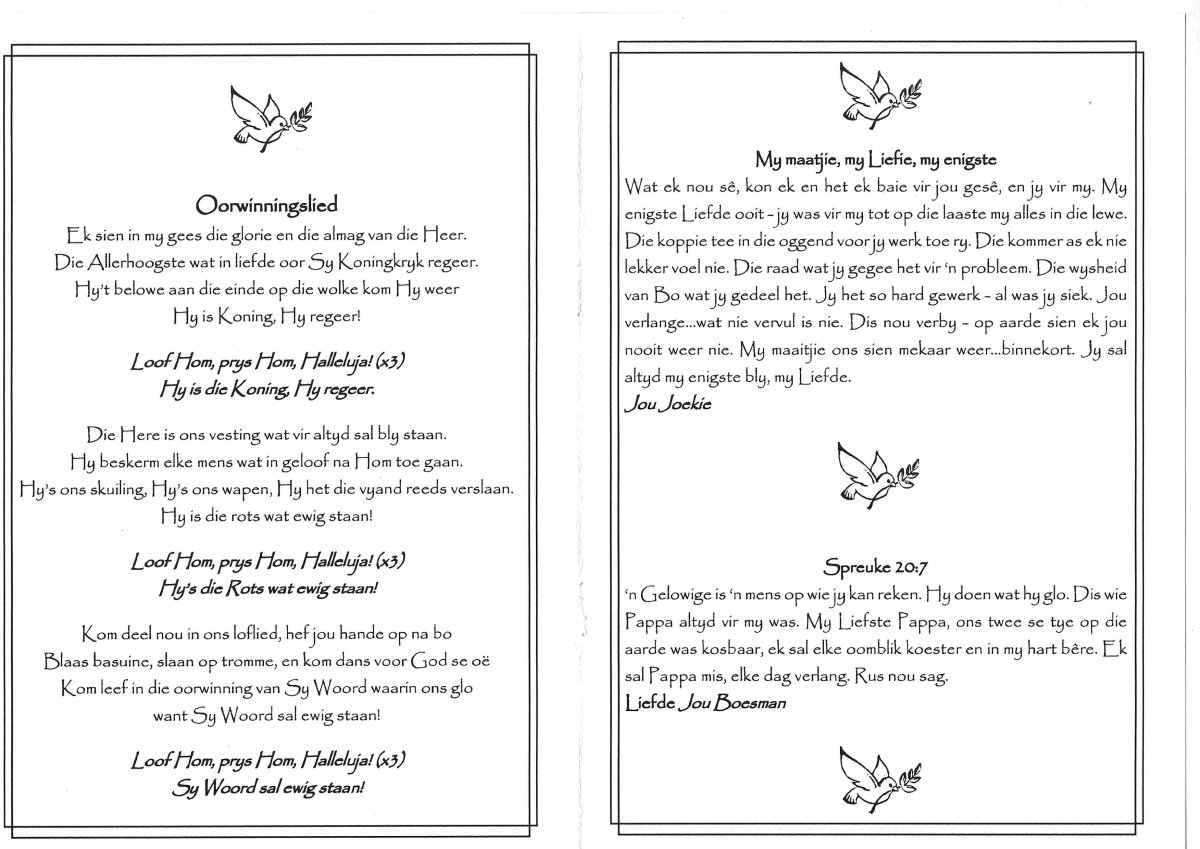 Oorwinningslied
Ek sien in my gees die glorie en die almag van die Heer.
Die Allerhoogste wat in liefde oor Sy Koningkryk regeer.
Hy't belowe aan die einde op die wolke kom Hy weer
Hy is Koning, Hy regeer!
Loof Hom, prys Hom, Halleluja! (x3)
Hy is die Koning, Hy regeer.
Die Here is ons vesting wat vir altyd sal bly staan.
Hy beskerm elke mens wat in geloof na Hom toe gaan.
Hy's ons skuiling, Hy's ons wapen, Hy het die vyand reeds verslaan.
Hy is die rots wat ewig staan!
Loof Hom, prys Hom, Halleluja! (x3)
Hy's die Rots wat ewig staan!
Kom deel nou in ons loflied, hef jou hande op na bo
Blaas basuine, slaan op tromme, en kom dans voor God se oë
Kom leef in die oorwinning van Sy Woord waarin ons glo
want Sy Woord sal ewig staan!
Loof Hom, prys Hom, Halleluja! (x3)
Sy Woord sal ewig staan!
My maatjie, my Liefie, my enigste
Wat ek nou sê, kon ek en het ek baie vir jou gesê, en jy vir my. My
enigste Liefde ooit - jy was vir my tot op die laaste my alles in die lewe.
Die koppie tee in die oggend voor jy werk toe ry. Die kommer as ek nie
lekker voel nie. Die raad wat jy gegee het vir 'n probleem. Die wysheid
van Bo wat jy gedeel het. Jy het so hard gewerk - al was jy siek. Jou
verlange...wat nie vervul is nie. Dis nou verby - op aarde sien ek jou
nooit weer nie. My maaitjie ons sien mekaar weer...binnekort. Jy sal
altyd my enigste bly, my Liefde.
Jou Joekie
Spreuke 20:7
'n Gelowige is 'n mens op wie jy kan reken. Hy doen wat hy glo. Dis wie
Pappa altyd vir my was. My Liefste Pappa, ons twee se tye op die
aarde was kosbaar, ek sal elke oomblik koester en in my hart bêre. Ek
sal Pappa mis, elke dag verlang. Rus nou sag.
Liefde Jou Boesman